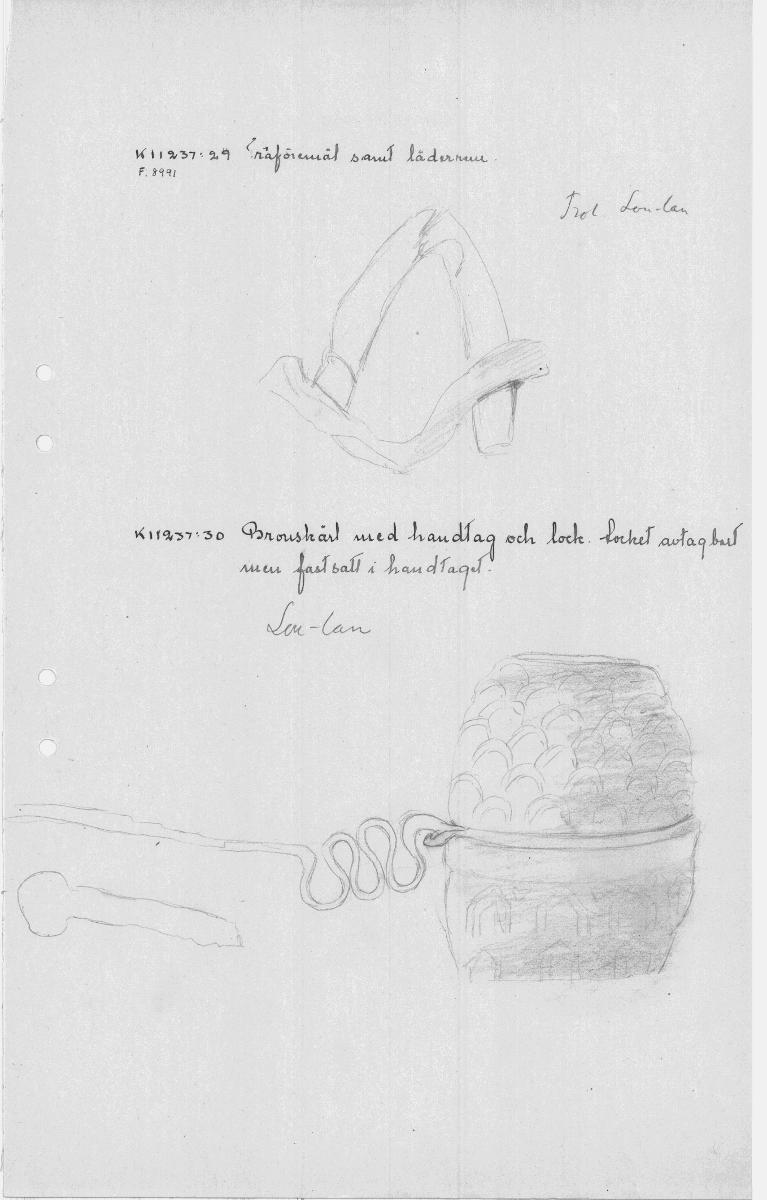 K11237:29 Träföremål samt läderrem.
F. 8991
Trol. Lou-lan
K11237:30 Bronskärl med handtag och lock. Locket avtagbart
men fastsatt i handtaget.
Lou-lan